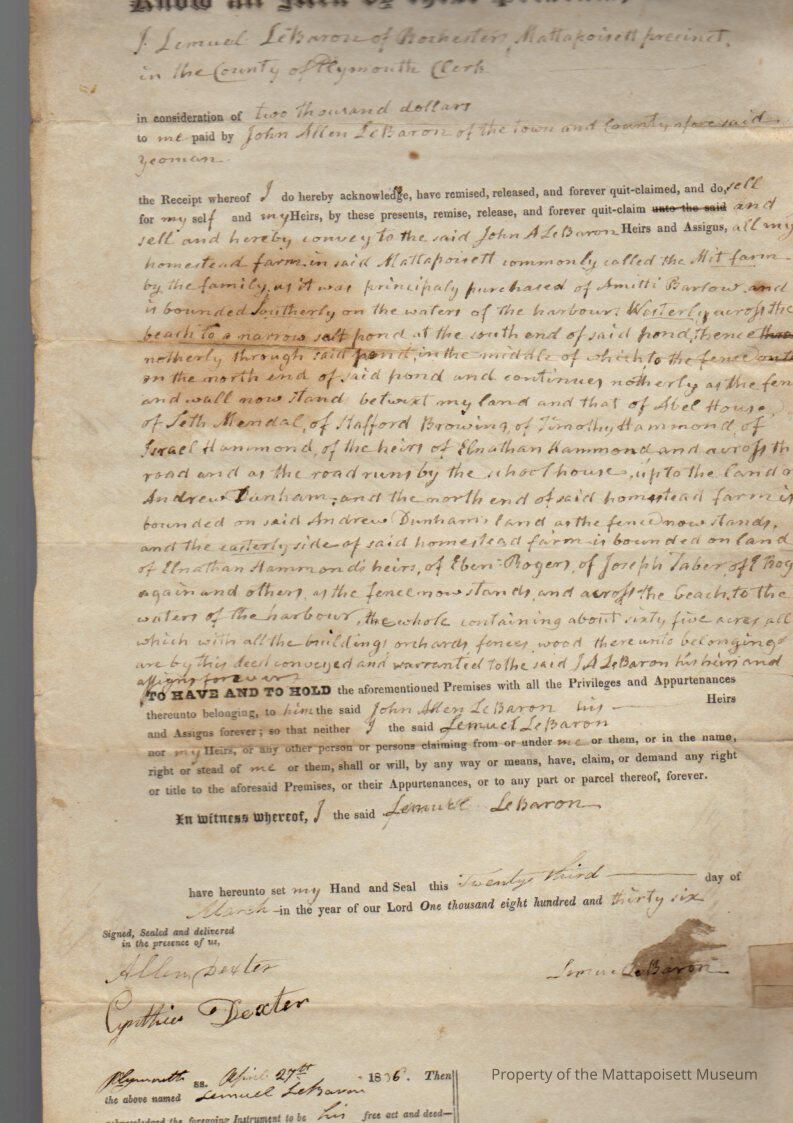 Know all Men by these Presents,
I Lemuel LeBaron of Rochester, Mattapoisett precinct,
in the County of Plymouth Clerk
in consideration of two thousand dollars
to me paid by John Allen LeBaron of the town and County afore said
yeoman
the Receipt whereof I do hereby acknowledge, have remised, released, and forever quit-claimed, and do, sell
for my self and my Heirs, by these presents, remise, release, and forever quit-claim unto the said and
sell and hereby convey to the said John A LeBaron Heirs and Assigns, all my
homestead farm in said Mattapoisett commonly called the Mit farm
by the family, as it was principaly purchased of Barlow and
is bounded Southerly on the waters of the harbour, Westerly across the
beach to a narrow salt pond at the south end of said pond, thence
notherly through said pond, in the middle of which, to the fence
on the north end of said pond and continues notherly as the fen
and wall now stand betwixt my land and that of Abel House,
of Seth Mendal, of Stafford Browing, of Timothy Hammond, of
Israel Hammond, of the heirs of Elnathan Hammond and across th
road and as the road runs by the school house, up to the land o
Andrew Dunham; and the north end of said homestead farm is
bounded on said Andrew Dunham's land as the fence now stands,
and the easterly side of said homestead farm is bounded on land
of Elnathan Hammond's heirs, of Eben: Rogers, of Joseph Taber, of E Rog
again and others, as the fence now stands, and across the beach to the
waters of the harbour, the whole containing about sixty five acres all
which with all the buildings orchards, fences, wood thereunto belonging
are by this deed conveyed and warrantied to the said J A LeBaron his heirs and
assigns forever
TO HAVE AND TO HOLD the aforementioned Premises with all the Privileges and Appurtenances
thereunto belonging, to him the said John Allen LeBaron his Heirs
and Assigns forever; so that neither I the said Lemuel LeBaron
nor my Heirs, or any other person or persons claiming from or under me or them, or in the name,
right or stead of me or them, shall or will, by any way or means, have, claim, or demand any right
or title to the aforesaid Premises, or their Appurtenances, or to any part or parcel thereof, forever.
In witness whereof, I the said Lemuel LeBaron
have hereunto set my Hand and Seal this Twenty third day of
March in the year of our Lord One thousand eight hundred and thirty six
Signed, Sealed and delivered
in the presence of us,
Allen Dexter
Lemuel LeBaron
Cynthia Dexter
Plymouth ss. April 27th 1836. Then
the above named Lemuel LeBaron
acknowledged the foregoing Instrument to be his free act and deed—
Property of the Mattapoisett Museum